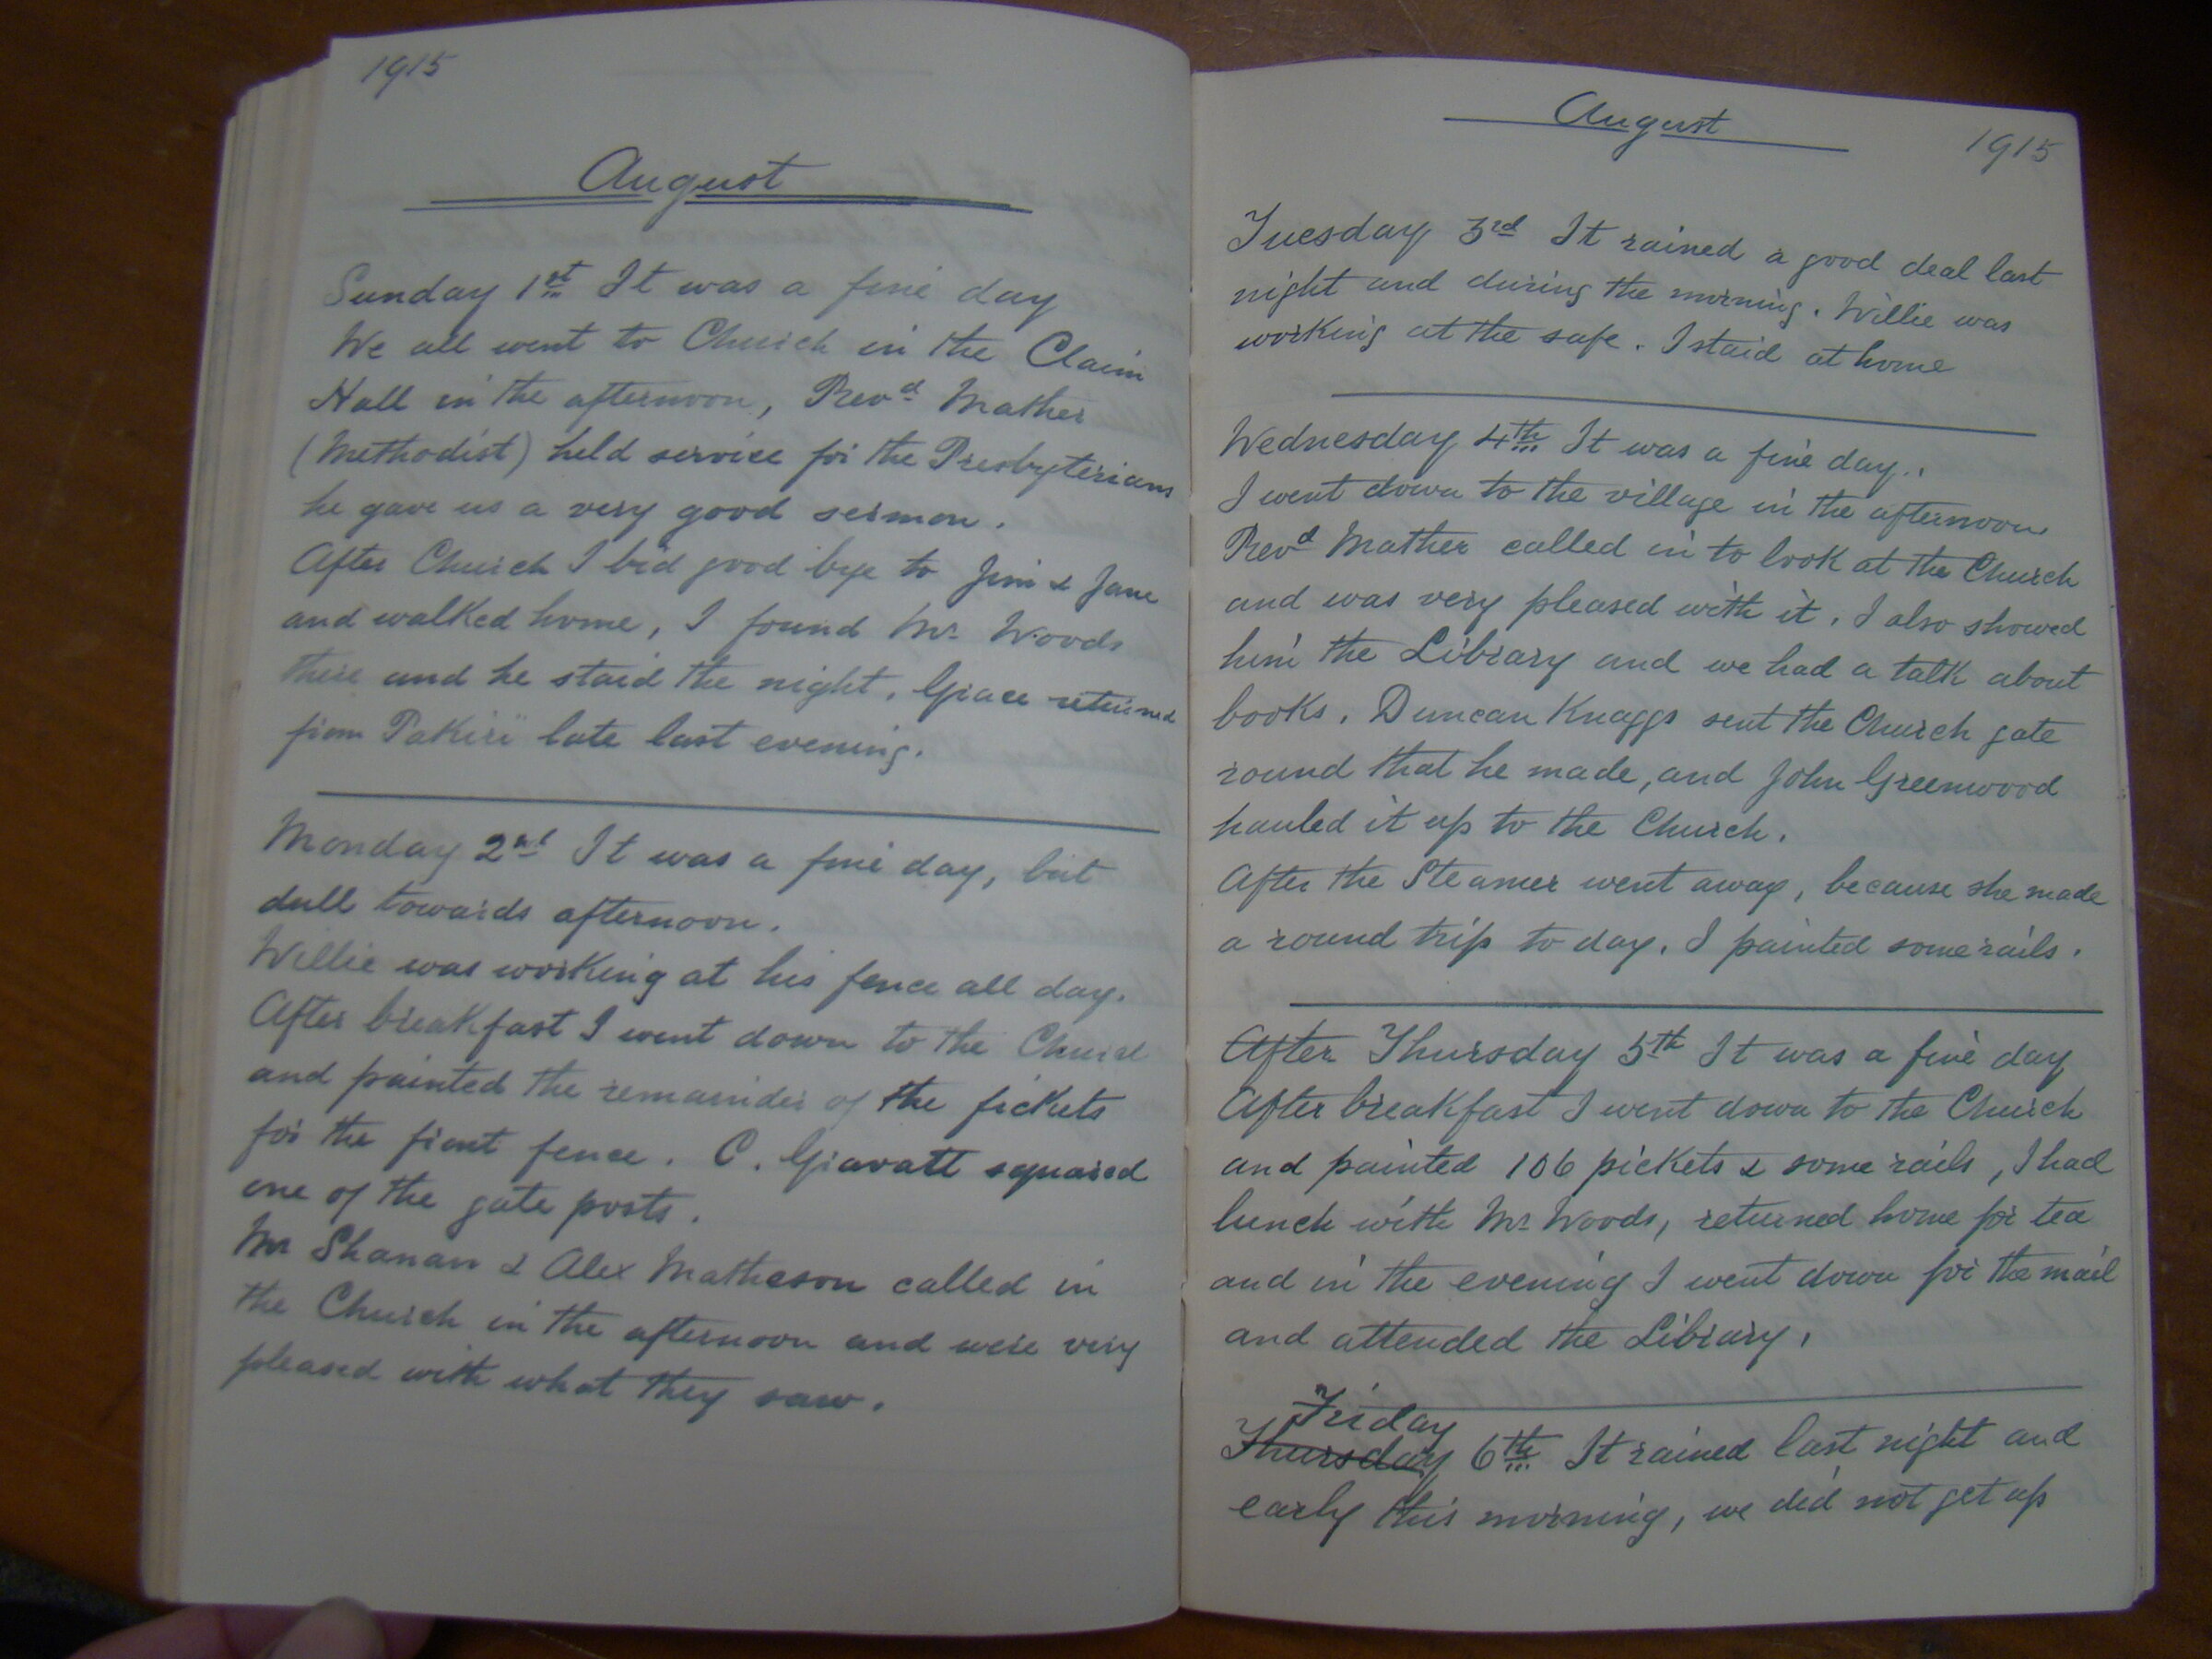 1915
August
Sunday 1st It was a fine day
We all went to Church in the Claim
Hall in the afternoon, Revd Mather
(Methodist) held service for the Presbyterians
he gave us a very good sermon.
After Church I bid good bye to Jim & Jane
and walked home, I found Mr. Woods
there and he staid the night. Grace returned
from Pakiri late last evening.
Monday 2nd It was a fine day, but
dull towards afternoon.
Willie was working at his fence all day.
After breakfast I went down to the Church
and painted the remainder of the pickets
for the front fence. C. Gravatt squared
one of the gate posts.
Mr Shanan & Alex Matheson called in
the Church in the afternoon and were very
pleased with what they saw.
August
1915
Tuesday 3rd It rained a good deal last
night and during the morning. Willie was
working at the safe. I staid at home
Wednesday 4th It was a fine day.
I went down to the village in the afternoon
Revd Mather called in to look at the Church
and was very pleased with it. I also showed
him the Library and we had a talk about
books. Duncan Knaggs sent the Church gate
round that he made, and John Greenwood
hauled it up to the Church.
After the Steamer went away, because she made
a round trip to day. I painted some rails.
After Thursday 5th It was a fine day
After breakfast I went down to the Church
and painted 106 pickets & some rails, I had
lunch with Mr. Woods, returned home for tea
and in the evening I went down for the mail
and attended the Library.
Friday
Thursday 6th It rained last night and
early this morning, we did not get up